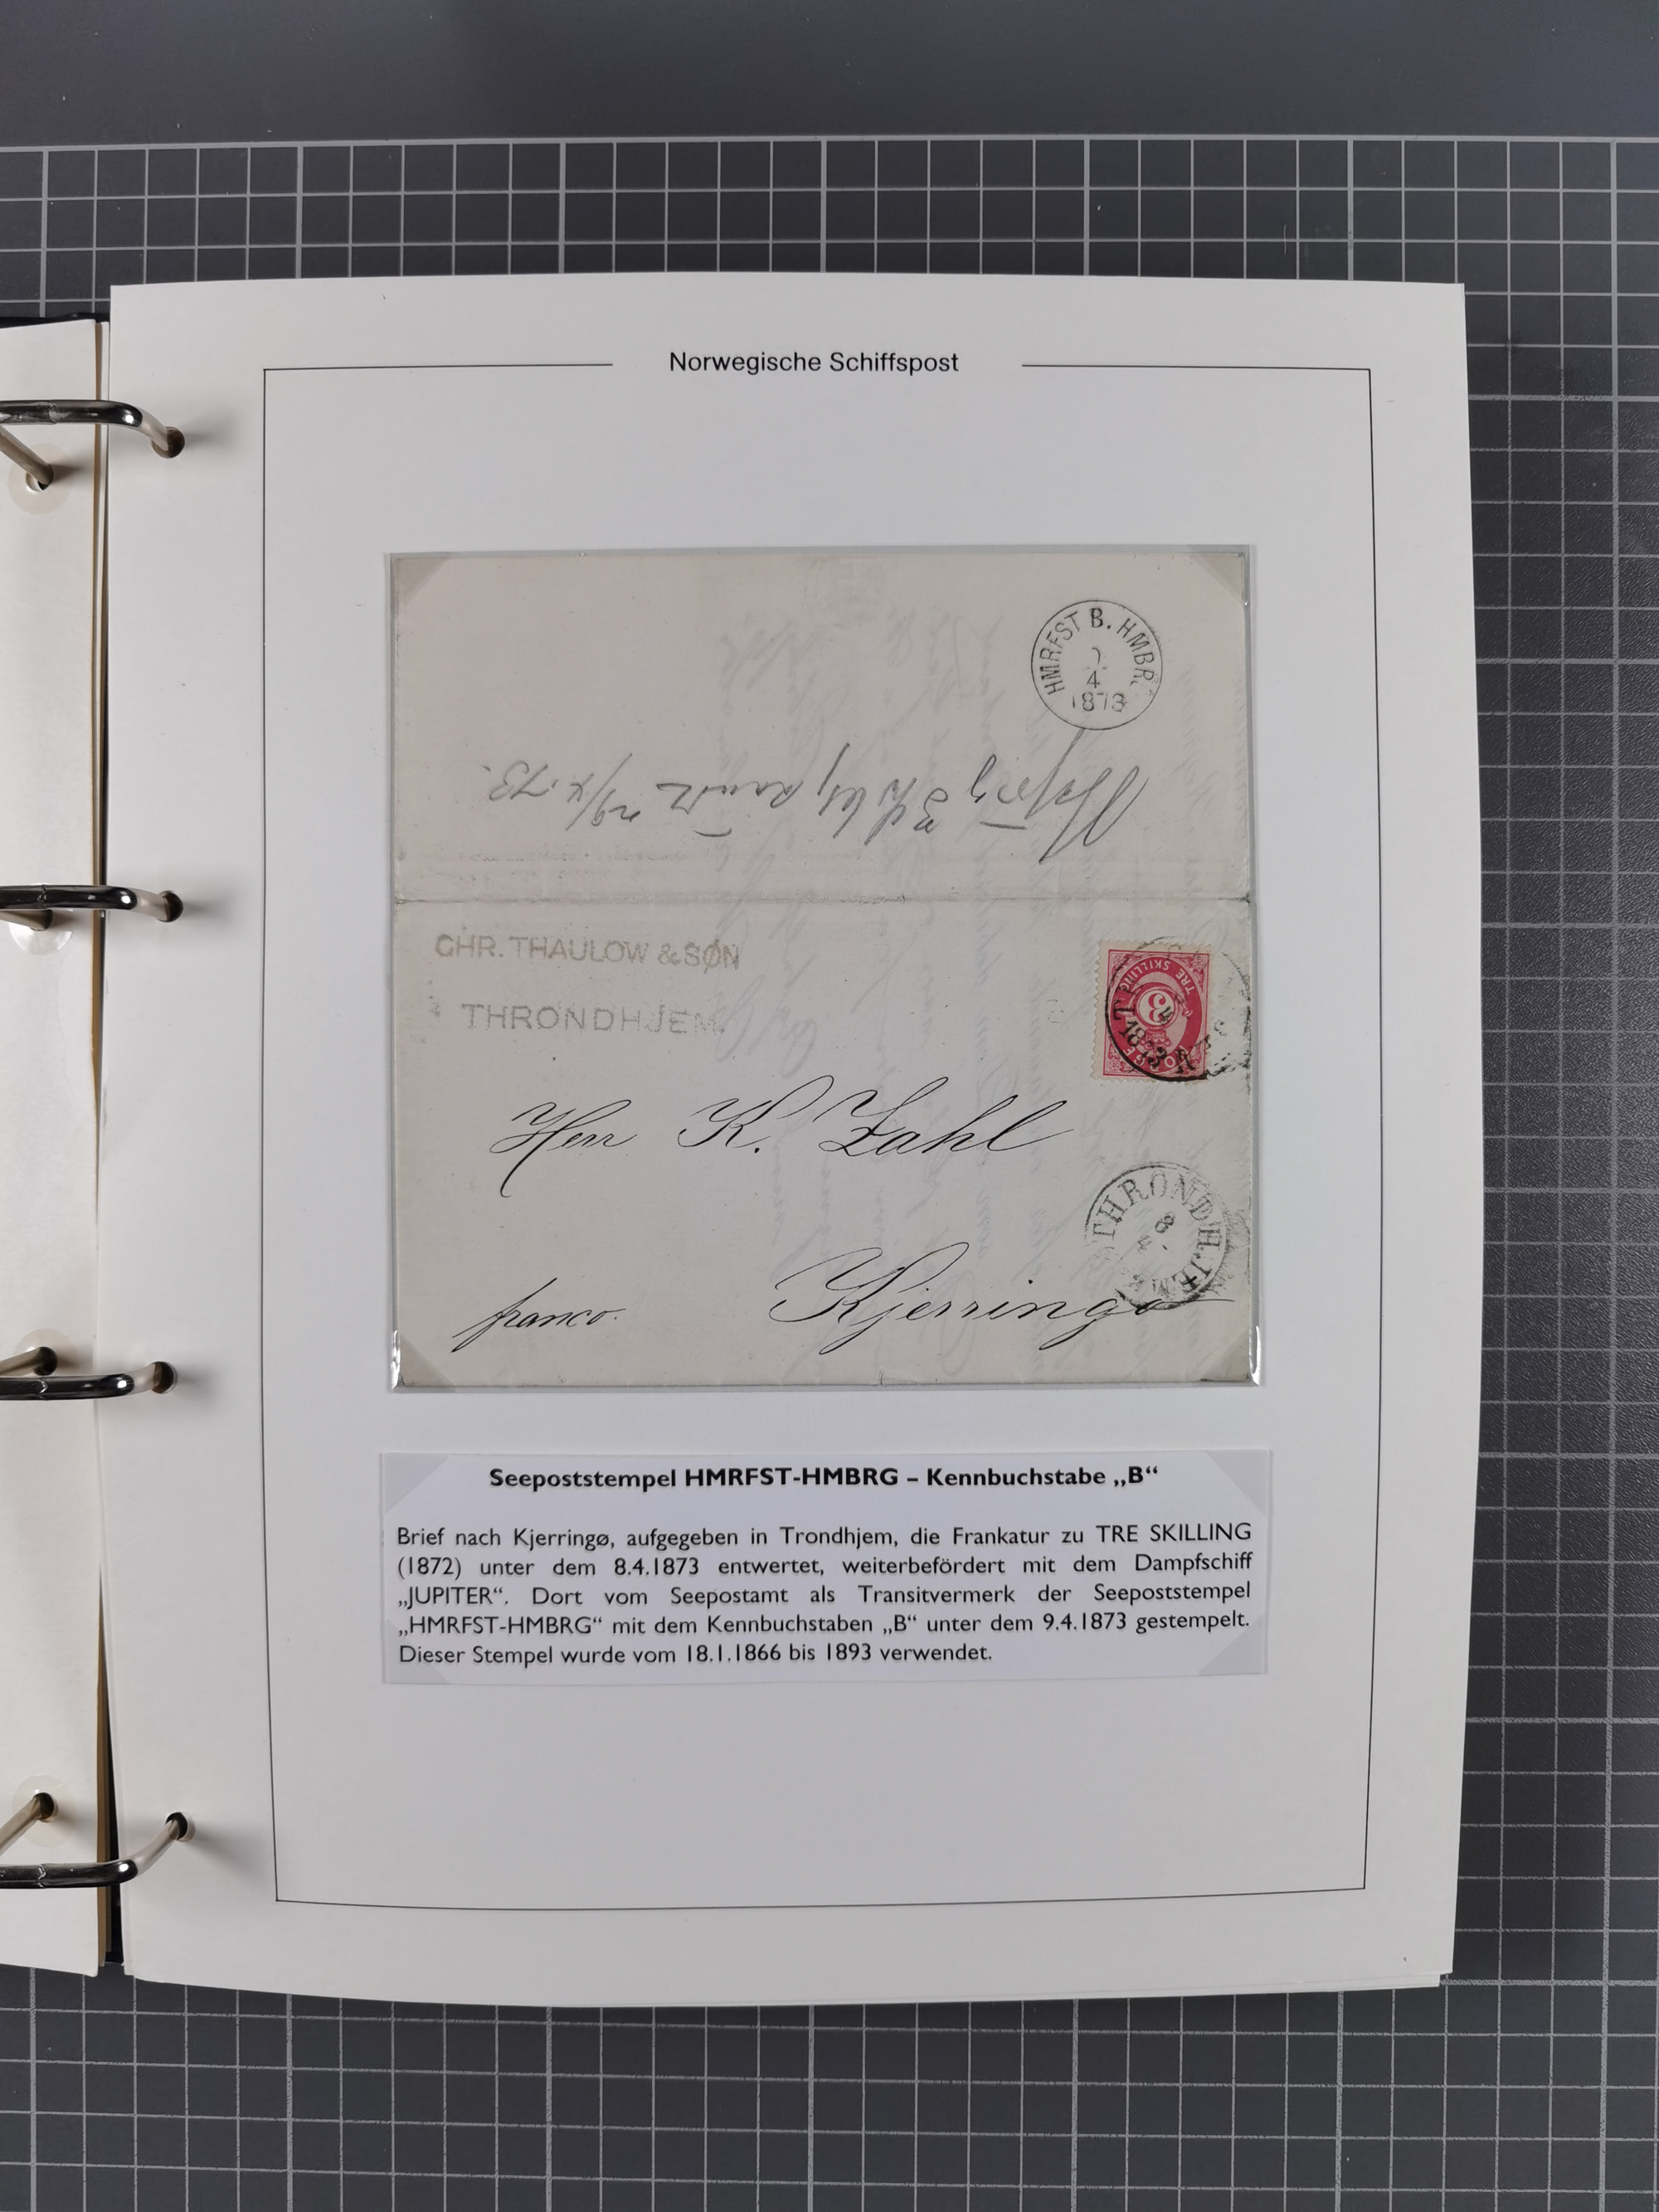 Norwegische Schiffspost
HMRFST B. HMBRG
4
1873
CHR. THAULOW & SØN
THRONDHJEM.
TRE SKILLING
3
NORGE
1873
Herr K. Zahl
THRONDHJEM
8
4
franco.
Kjerringø
Seepoststempel HMRFST-HMBRG – Kennbuchstabe „B“
Brief nach Kjerringø, aufgegeben in Trondhjem, die Frankatur zu TRE SKILLING
(1872) unter dem 8.4.1873 entwertet, weiterbefördert mit dem Dampfschiff
„JUPITER“. Dort vom Seepostamt als Transitvermerk der Seepoststempel
„HMRFST-HMBRG“ mit dem Kennbuchstaben „B“ unter dem 9.4.1873 gestempelt.
Dieser Stempel wurde vom 18.1.1866 bis 1893 verwendet.